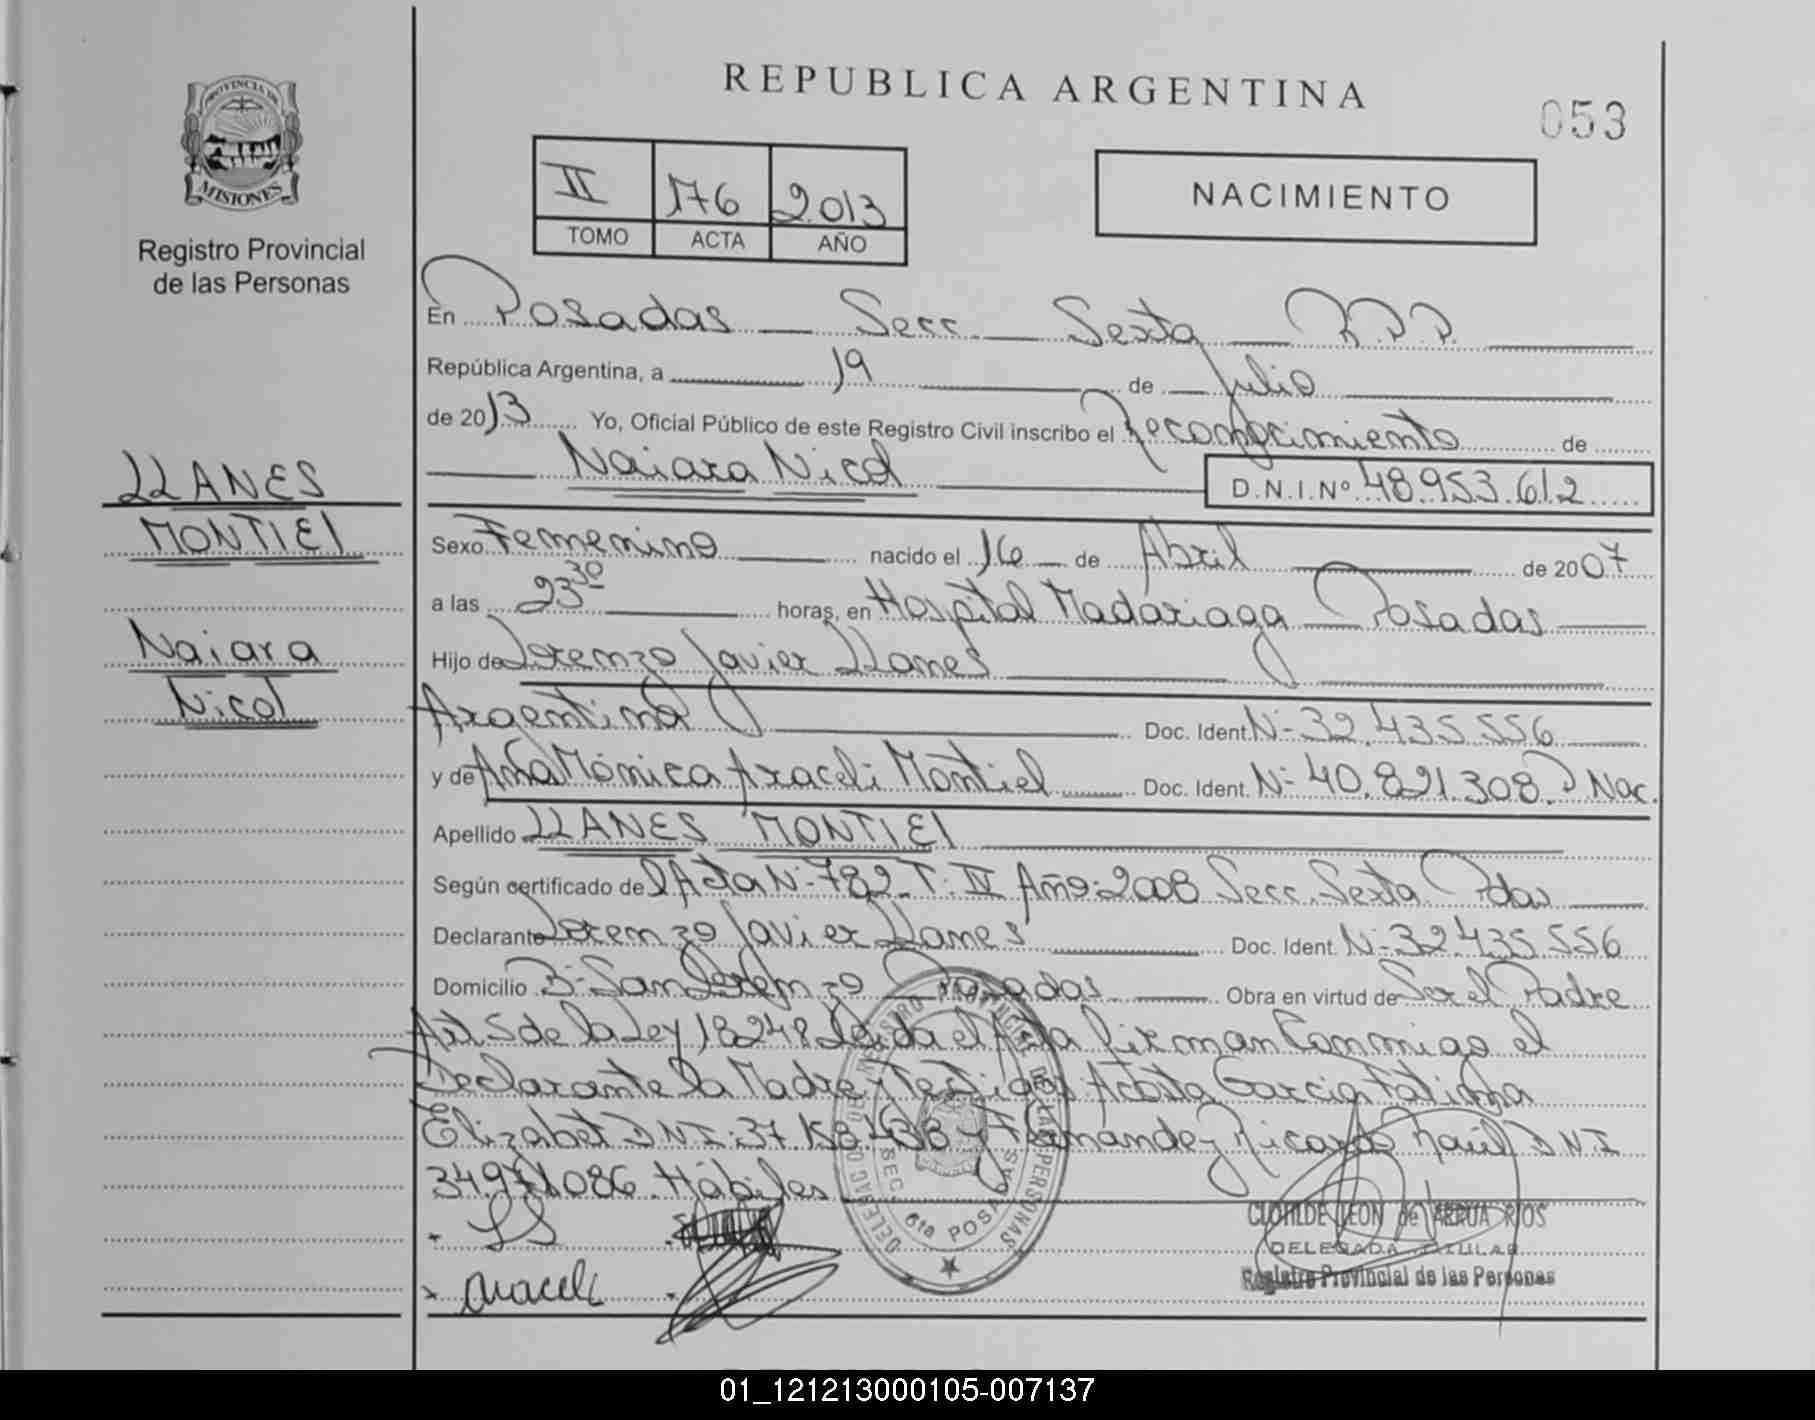 REPUBLICA ARGENTINA
053
PROVINCIA DE
MISIONES
Registro Provincial
de las Personas
II 176 2013
TOMO ACTA AÑO
NACIMIENTO
En Posadas Secc. Sexta R.P.P.
República Argentina, a 19 de Julio
de 2013 Yo, Oficial Público de este Registro Civil inscribo el Reconocimiento de
Naiara Nicol D.N.I.Nº 48.953.612
LLANES
MONTIEL
Naiara
Nicol
Sexo Femenino nacido el 16 de Abril de 2007
a las 23 30 horas, en Hospital Madariaga Posadas
Hijo de Lorenzo Javier LLanes
Argentina Doc. Ident. Nº 32.435.556
y de Ana Mónica Araceli Montiel Doc. Ident. Nº 40.821.308. Nac.
Apellido LLANES MONTIEL
Según certificado del Acta Nº 782 T: IV Año: 2008 Secc. Sexta Pdas
Declarante Lorenzo Javier LLanes Doc. Ident. Nº 32.435.556
Domicilio Bº San Lorenzo Posadas Obra en virtud de Ser el Padre
Art. 5 de la Ley 18248 Leida el Acta firman Conmigo el
Declarante la Madre y Testigos Acosta Garcia Fatima
Elizabet DNI: 37.158.438 y Fernandez Ricardo Raúl DNI
34.971.086. Hábiles
LS
Araceli
DELEGACION DEL REGISTRO PROVINCIAL DE LAS PERSONAS
SEC. 6ta POSADAS
CLOTILDE LEON de ARRUA RIOS
DELEGADA TITULAR
Registro Provincial de las Personas
01_121213000105-007137